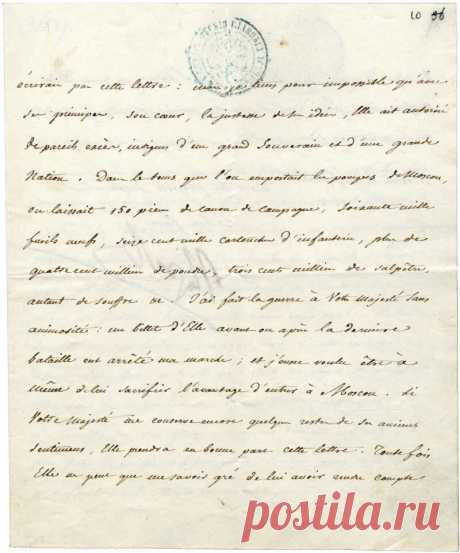 10 96
écrirais pas cette lettre : mais je tiens pour impossible qu'avec
ses principes, son cœur, la justesse de ses idées, Elle ait autorisé
de pareils excès, indignes d'un grand Souverain et d'une grande
Nation. Dans le tems que l'on emportait les pompes de Moscou,
on laissait 150 pièces de canon de Campagne, Soixante mille
fusils neufs, seize cent mille cartouches d'infanterie, plus de
quatre cent milliers de poudre, trois cent milliers de salpêtre,
autant de souffre &c. J'ai fait la guerre à Votre Majesté Sans
animosité : un billet d'Elle avant ou après la dernière
bataille eut arrêté ma marche ; et j'eusse voulu être à
même de lui sacrifier l'avantage d'entrer à Moscou. Si
Votre Majesté me conserve encore quelques restes de ses anciens
sentimens, Elle prendra en bonne part cette lettre. Toute fois
Elle ne peut que me savoir gré de lui avoir rendu compte
Postila.ru